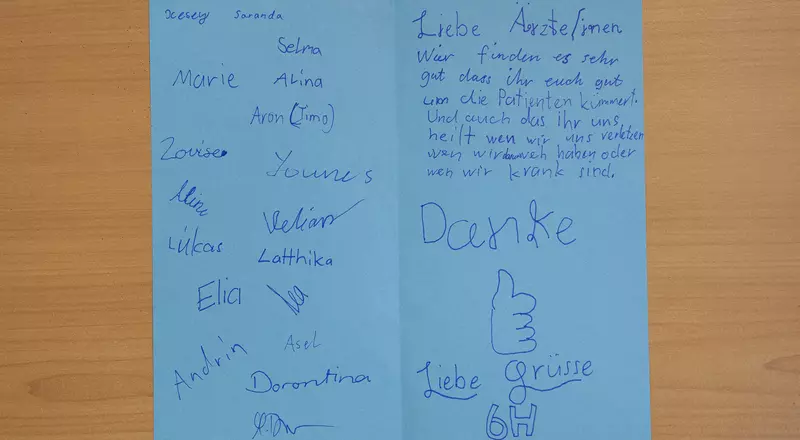 Saranda
Selma
Marie Alina
Aron (Timo)
Louise
Younes
Alina
Velian
Lukas
Latthika
Elia Lea
Andrin Asel
Dorontina
Liebe Ärzte/innen
Wir finden es sehr
gut dass ihr euch gut
um die Patienten kümmert.
Und auch das ihr uns
heilft wen wir uns verletzen
wen wir haben oder
wen wir krank sind.
Danke
Liebe Grüsse
6H